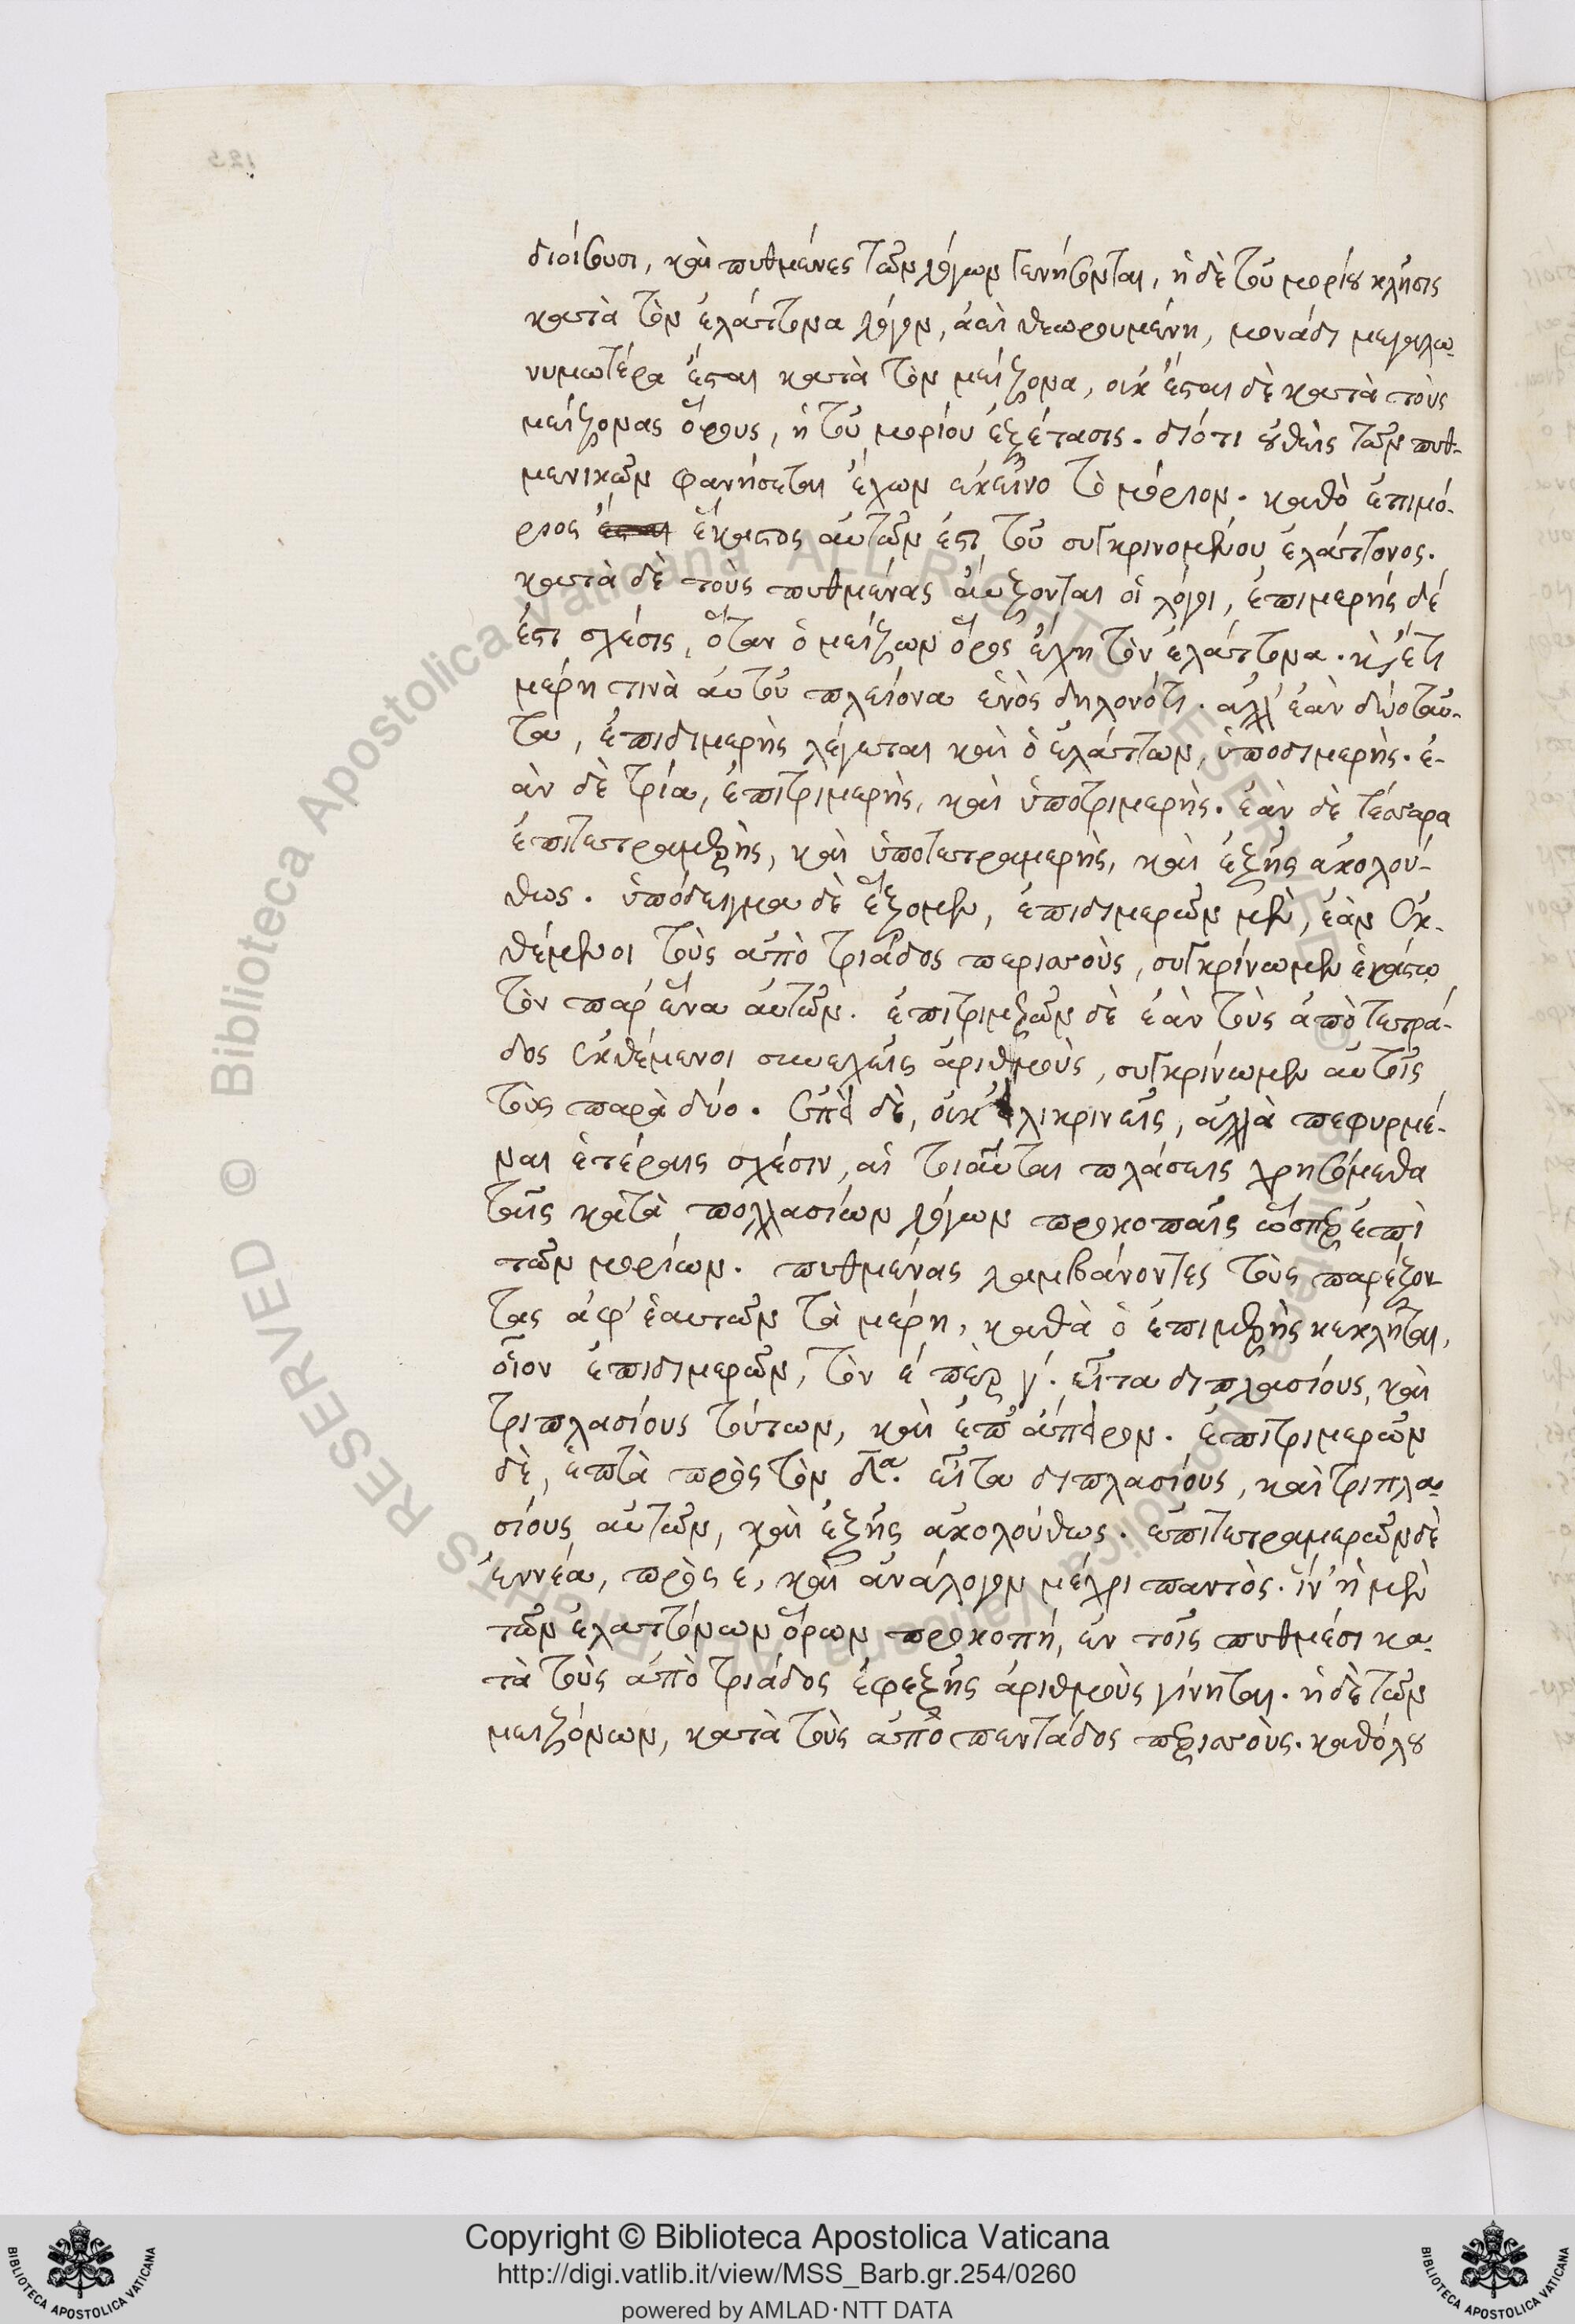 διοίσουσι, καὶ πυθμένες τῶν λόγων γενήσονται, ἡ δὲ τοῦ μορίου κλῆσις
κατὰ τὸν ἐλάττονα λόγον, ἀεὶ θεωρουμένη, μονάδι μεγαλω-
νυμωτέρα ἔσται κατὰ τὸν μείζονα, οὐκ ἔσται δὲ κατὰ τοὺς
μείζονας ὅρους, ἡ τοῦ μορίου ἐξέτασις. διότι οὐθεὶς τῶν πυθ-
μενικῶν φανήσεται ἔχων ἐκεῖνο τὸ μόριον. καθὸ ἐπιμό-
ριος ἕκαστος αὐτῶν ἐστι τοῦ συγκρινομένου ἐλάττονος.
κατὰ δὲ τοὺς πυθμένας αὔξονται οἱ λόγοι, ἐπιμερής δέ
ἐστι σχέσις, ὅταν ὁ μείζων ὅρος ἔχη τὸν ἐλάττονα. κ ἔτι
μέρη τινὰ αὐτοῦ πλείονα ἑνὸς δηλονότι. ἀλλ' ἐὰν δύο ταῦ-
τα, ἐπιδιμερὴς λέγεται καὶ ὁ ἐλάττων, ὑποδιμερὴς. ἐ-
ὰν δὲ τρία, ἐπιτριμερὴς, καὶ ὑποτριμερὴς. ἐὰν δὲ τέσσαρα
ἐπιτετραμερὴς, καὶ ὑποτετραμερὴς, καὶ ἑξῆς ἀκολού-
θως. ὑπόδειγμα δὲ ἕξομεν, ἐπιδιμερῶν μὲν, ἐὰν ἐκ-
θέμενοι τοὺς ἀπὸ τριάδος περισσοὺς, συγκρίνωμεν ἑκάστω
τὸν παρ' ἕνα αὐτῶν. ἐπιτριμερῶν δὲ ἐὰν τοὺς ἀπὸ τετρά-
δος ἐκθέμενοι συνεχεῖς ἀριθμοὺς, συγκρίνωμεν αὐτοῖς
τοὺς παρὰ δύο. ἐπεὶ δὲ, οὐκ εἰλικρινεῖς, ἀλλὰ πεφυρμέ-
ναι ἑτέραις σχέσιν, αἱ τοιαῦται πλάσεις χρησόμεθα
ταῖς κατὰ πολλασίων λόγων προκοπαῖς ὥσπερ ἐπὶ
τῶν μορίων. πυθμένας λαμβάνοντες τοὺς παρέξον-
τας ἀφ' ἑαυτῶν τὰ μέρη, καθὰ ὁ ἐπιμερὴς κέκληται,
οἷον ἐπιδιμερῶν, τὸν έ πὲρ γ΄. εἶτα διπλασίους, καὶ
τριπλασίους τούτων, καὶ ἐπ' ἄπειρον. ἐπιτριμερῶν
δὲ, ἑπτὰ πρὸς τὸν δα. εἶτα διπλασίους, καὶ τριπλα-
σίους αὐτῶν, καὶ ἑξῆς ἀκολούθως. ἐπιτετραμερῶν δὲ
ἐννέα, πρὸς έ, καὶ ἀνάλογον μέχρι παντὸς. ἵν' ἡ μὲν
τῶν ἐλαττόνων ὅρων προκοπή, ἐν τοῖς πυθμέσι κα-
τὰ τοὺς ἀπὸ τριάδος ἐφεξῆς ἀριθμοὺς γίνηται. ἡ δὲ τῶν
μειζόνων, κατὰ τοὺς ἀπὸ πεντάδος περισσοὺς. καθόλου
Copyright © Biblioteca Apostolica Vaticana
http://digi.vatlib.it/view/MSS_Barb.gr.254/0260
powered by AMLAD·NTT DATA